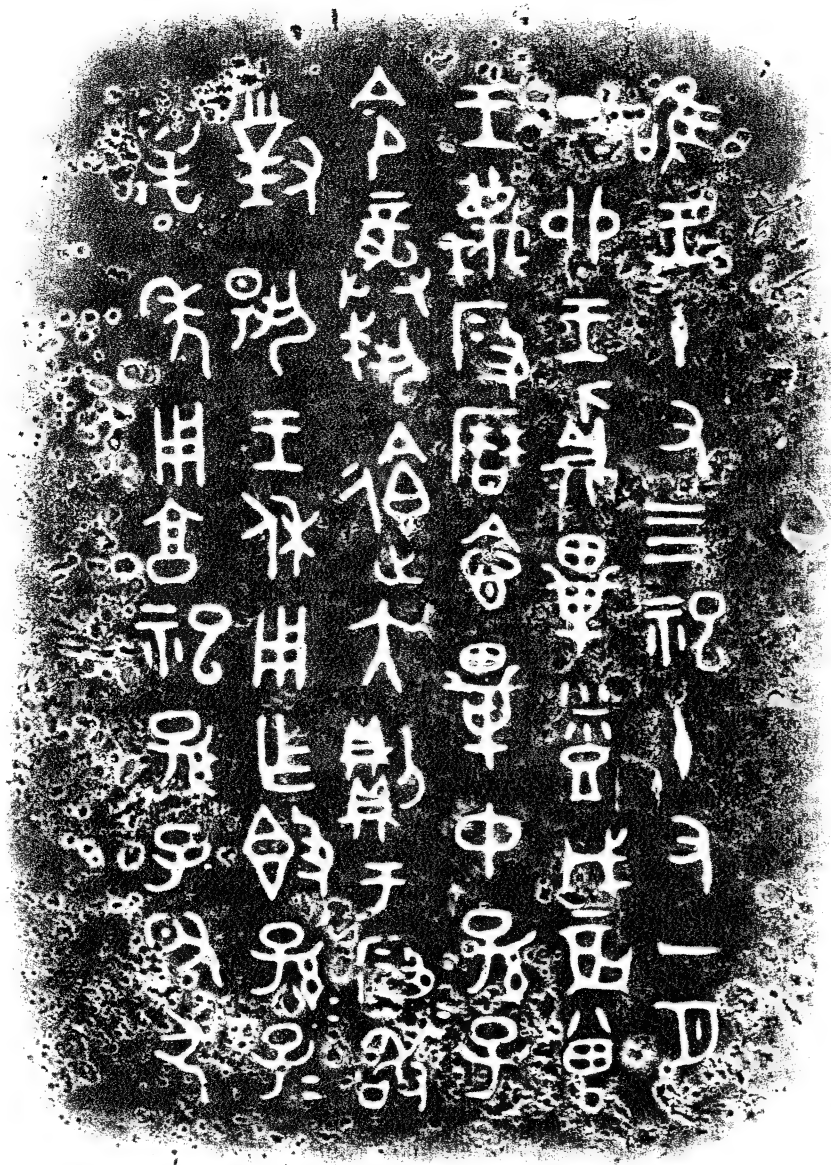 唯王十又四祀十又一月
丁卯王鼒畢烝戊辰曾
王蔑段曆念畢中孫子
令龏𢦚遺大則于段敢
對揚王休用乍簋孫=子=
萬年用亯祀孫子引